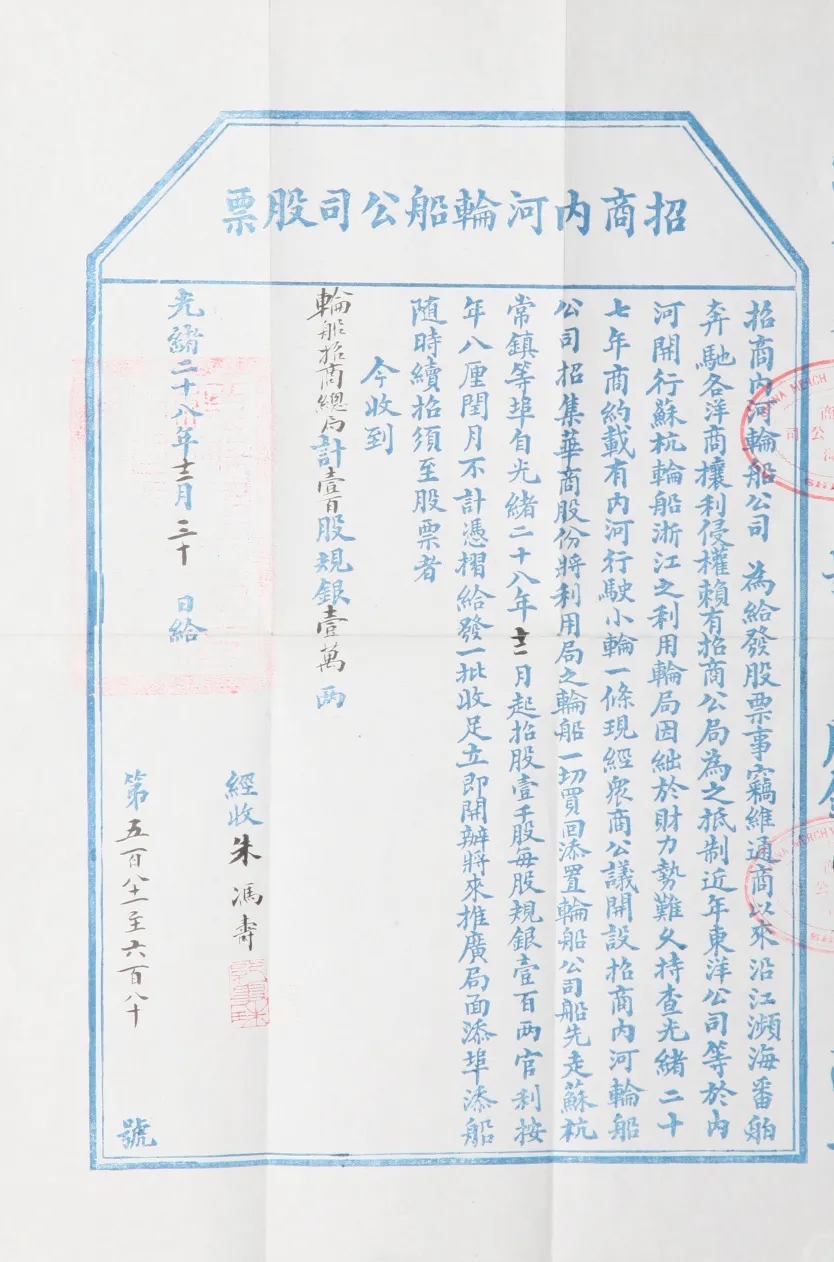 招商內河輪船公司股票
招商內河輪船公司　為給發股票事竊維通商以來沿江瀕海番舶
奔馳各洋商攘利侵權賴有招商公局為之抵制近年東洋公司等於內
河開行蘇杭輪船浙江之利用輪局因絀於財力勢難久持查光緒二十
七年商約載有內河行駛小輪一條現經衆商公議開設招商內河輪船
公司招集華商股份將利用局之輪船一切買回添置輪船公司船先走蘇杭
常鎮等埠自光緒二十八年十二月起招股壹千股每股規銀壹百两官利按
年八厘閏月不計憑摺給發一批收足立即開辦將來推廣局面添埠添船
隨時續招須至股票者
今收到
輪船招商總局計壹百股規銀壹萬两
經收朱馮壽
光緒二十八年十二月三十日給
第五百八十一至六百八十號